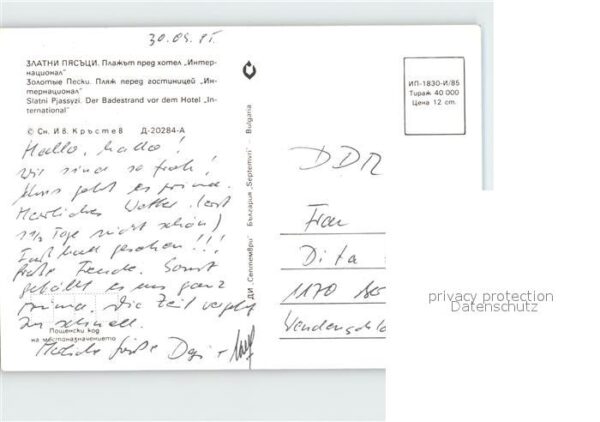 30.09.85
ЗЛАТНИ ПЯСЪЦИ. Плажът пред хотел „Интер-
национал"
Золотые Пески. Пляж перед гостиницей „Ин-
тернационал"
Slatni Pjassyzi. Der Badestrand vor dem Hotel „In-
ternational"
© Сн. Ив. Кръстев Д-20284-А
Hallo, hallo!
Wir sind so froh!
Uns geht es prima.
Herrliches Wetter (erst
1 1/2 Tage nicht schön)
Fußball gesehen!!!
große Freude. Sonst
gefällt es uns ganz
prima. Die Zeit vergeht
zu schnell.
Пощенски код
на местоназначението
Herzliche Grüße
ДИ „Септември" · България „Septemvri" · Bulgaria
ИП-1830-И/85
Тираж 40 000
Цена 12 ст.
DDR
Frau
Dita
1170
Wendenschlo
privacy protection
Datenschutz